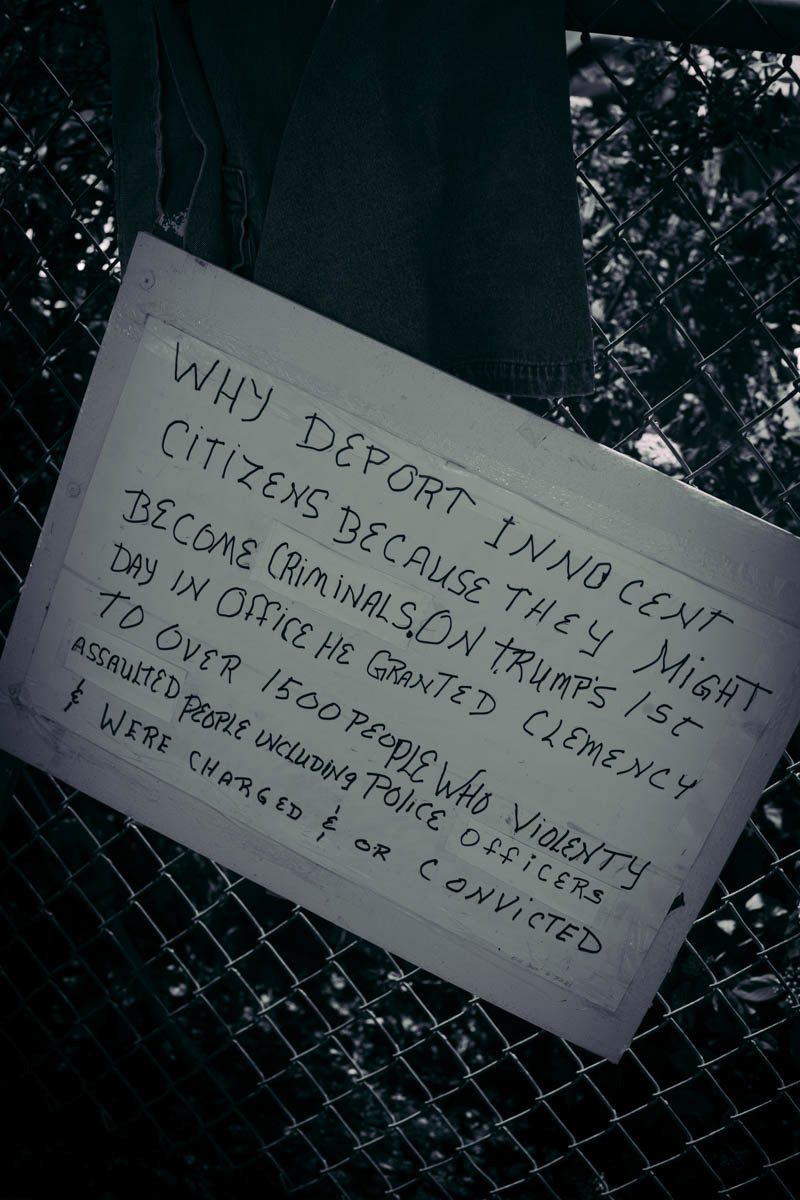 WHY DEPORT INNOCENT
CITIZENS BECAUSE THEY MIGHT
BECOME CRIMINALS. ON TRUMP'S 1ST
DAY IN OFFICE HE GRANTED CLEMENCY
TO OVER 1500 PEOPLE WHO VIOLENTY
ASSAULTED PEOPLE INCLUDING POLICE OFFICERS
& WERE CHARGED & OR CONVICTED